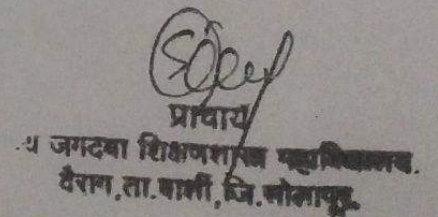 प्राचार्य
जगदंबा शिक्षणशास्त्र महाविद्यालय.
वैराग, ता. बार्शी, जि. सोलापूर.